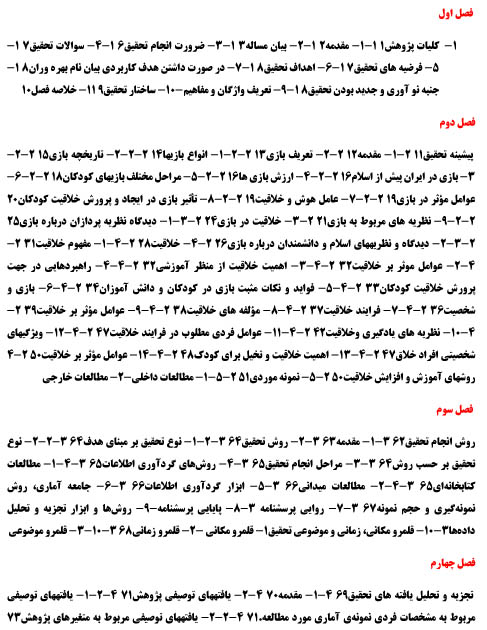 فصل اول
۱- کلیات پژوهش۱ ۱-۱- مقدمه۲ ۱-۲- بیان مساله۳ ۱-۳- ضرورت انجام تحقیق۶ ۱-۴- سوالات تحقیق۷ ۱-
۵- فرضیه های تحقیق۱۷-۶- اهداف تحقیق۱۸-۷- در صورت داشتن هدف کاربردی بیان نام بهره وران۱۸-
جنبه نو آوری و جدید بودن تحقیق۱۸-۹- تعریف واژگان و مفاهیم-۱۰- ساختار تحقیق۱۱۹- خلاصه فصل۱۰
فصل دوم
پیشینه تحقیق۱۱ ۲-۱- مقدمه۱۲ ۲-۲- تعریف بازی۱۳ ۲-۲-۱- انواع بازیها۱۴ ۲-۲-۲- تاریخچه بازی۱۵ ۲-۲-
۳- بازی در ایران پیش از اسلام۱۶ ۲-۲-۴- ارزش بازی ها۱۶ ۲-۲-۵- مراحل مختلف بازیهای کودکان۱۸ ۲-۲-۶-
عوامل مؤثر در بازی۱۹ ۲-۲-۷- عامل هوش و خلاقیت۱۹ ۲-۲-۸- تأثیر بازی در ایجاد و پرورش خلاقیت کودکان۲۰
۲-۲-۹- نظریه های مربوط به بازی۲۱ ۲-۳- خلاقیت در بازی۲۴ ۲-۳-۱- دیدگاه نظریه پردازان درباره بازی۲۵
۲-۳-۲- دیدگاه و نظریههای اسلام و دانشمندان درباره بازی۲۶ ۲-۴- خلاقیت۲۸ ۲-۴-۱- مفهوم خلاقیت۳۱ ۲-
۴-۲- عوامل موثر بر خلاقیت۳۲ ۲-۴-۳- اهمیت خلاقیت از منظر آموزشی۳۲ ۲-۴-۴- راهبردهایی در جهت
پرورش خلاقیت کودکان۳۳ ۲-۴-۵- فواید و نکات مثبت بازی در کودکان و دانش آموزان۳۴ ۲-۴-۶- بازی و
شخصیت۳۶ ۲-۴-۷- فرایند خلاقیت۳۷ ۲-۴-۸- مؤلفه های خلاقیت۳۸ ۲-۴-۹- عوامل مؤثر بر خلاقیت۳۹ ۲-
۴-۱۰- نظریه های یادگیری وخلاقیت۴۲ ۲-۴-۱۱- عوامل فردی مطلوب در فرایند خلاقیت۴۷ ۲-۴-۱۲- ویژگیهای
شخصیتی افراد خلاق۴۷ ۲-۴-۱۳- اهمیت خلاقیت و تخیل برای کودک۴۸ ۲-۴-۱۴- عوامل مؤثر بر خلاقیت۵۰ ۲-۴
روشهای آموزش و افزایش خلاقیت۵۰ ۲-۵- نمونه موردی۵۱ ۲-۵-۱- مطالعات داخلی-۲- مطالعات خارجی
فصل سوم
روش انجام تحقیق۶۲ ۳-۱- مقدمه۶۳ ۳-۲- روش تحقیق۶۴ ۳-۲-۱- نوع تحقیق بر مبنای هدف۶۴ ۳-۲-۲- نوع
تحقیق بر حسب روش۶۴ ۳-۳- مراحل انجام تحقیق۶۵ ۳-۴- روش‌های گردآوری اطلاعات۶۵ ۳-۴-۱- مطالعات
کتابخانه‌ای۶۵ ۳-۴-۲- مطالعات میدانی۶۶ ۳-۵- ابزار گردآوری اطلاعات۶۶ ۳-۶- جامعه آماری، روش
نمونه‌گیری و حجم نمونه۶۷ ۳-۷- روایی پرسشنامه ۳-۸- پایایی پرسشنامه-۹- روش‌ها و ابزار تجزیه و تحلیل
داده‌ها۳-۱۰- قلمرو مکانی، زمانی و موضوعی تحقیق۱- قلمرو مکانی -۲- قلمرو زمانی۶۸ ۳-۱۰-۳- قلمرو موضوعی
فصل چهارم
تجزیه و تحلیل یافته های تحقیق۶۹ ۴-۱- مقدمه۷۰ ۴-۲- یافتههای توصیفی پژوهش۷۱ ۴-۲-۱- یافتههای توصیفی
مربوط به مشخصات فردی نمونه‌ی آماری مورد مطالعه.۷۱ ۴-۲-۲- یافتههای توصیفی مربوط به متغیرهای پژوهش۷۳